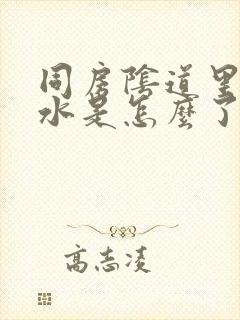 同房陰道里
水是怎麼了
高志凌